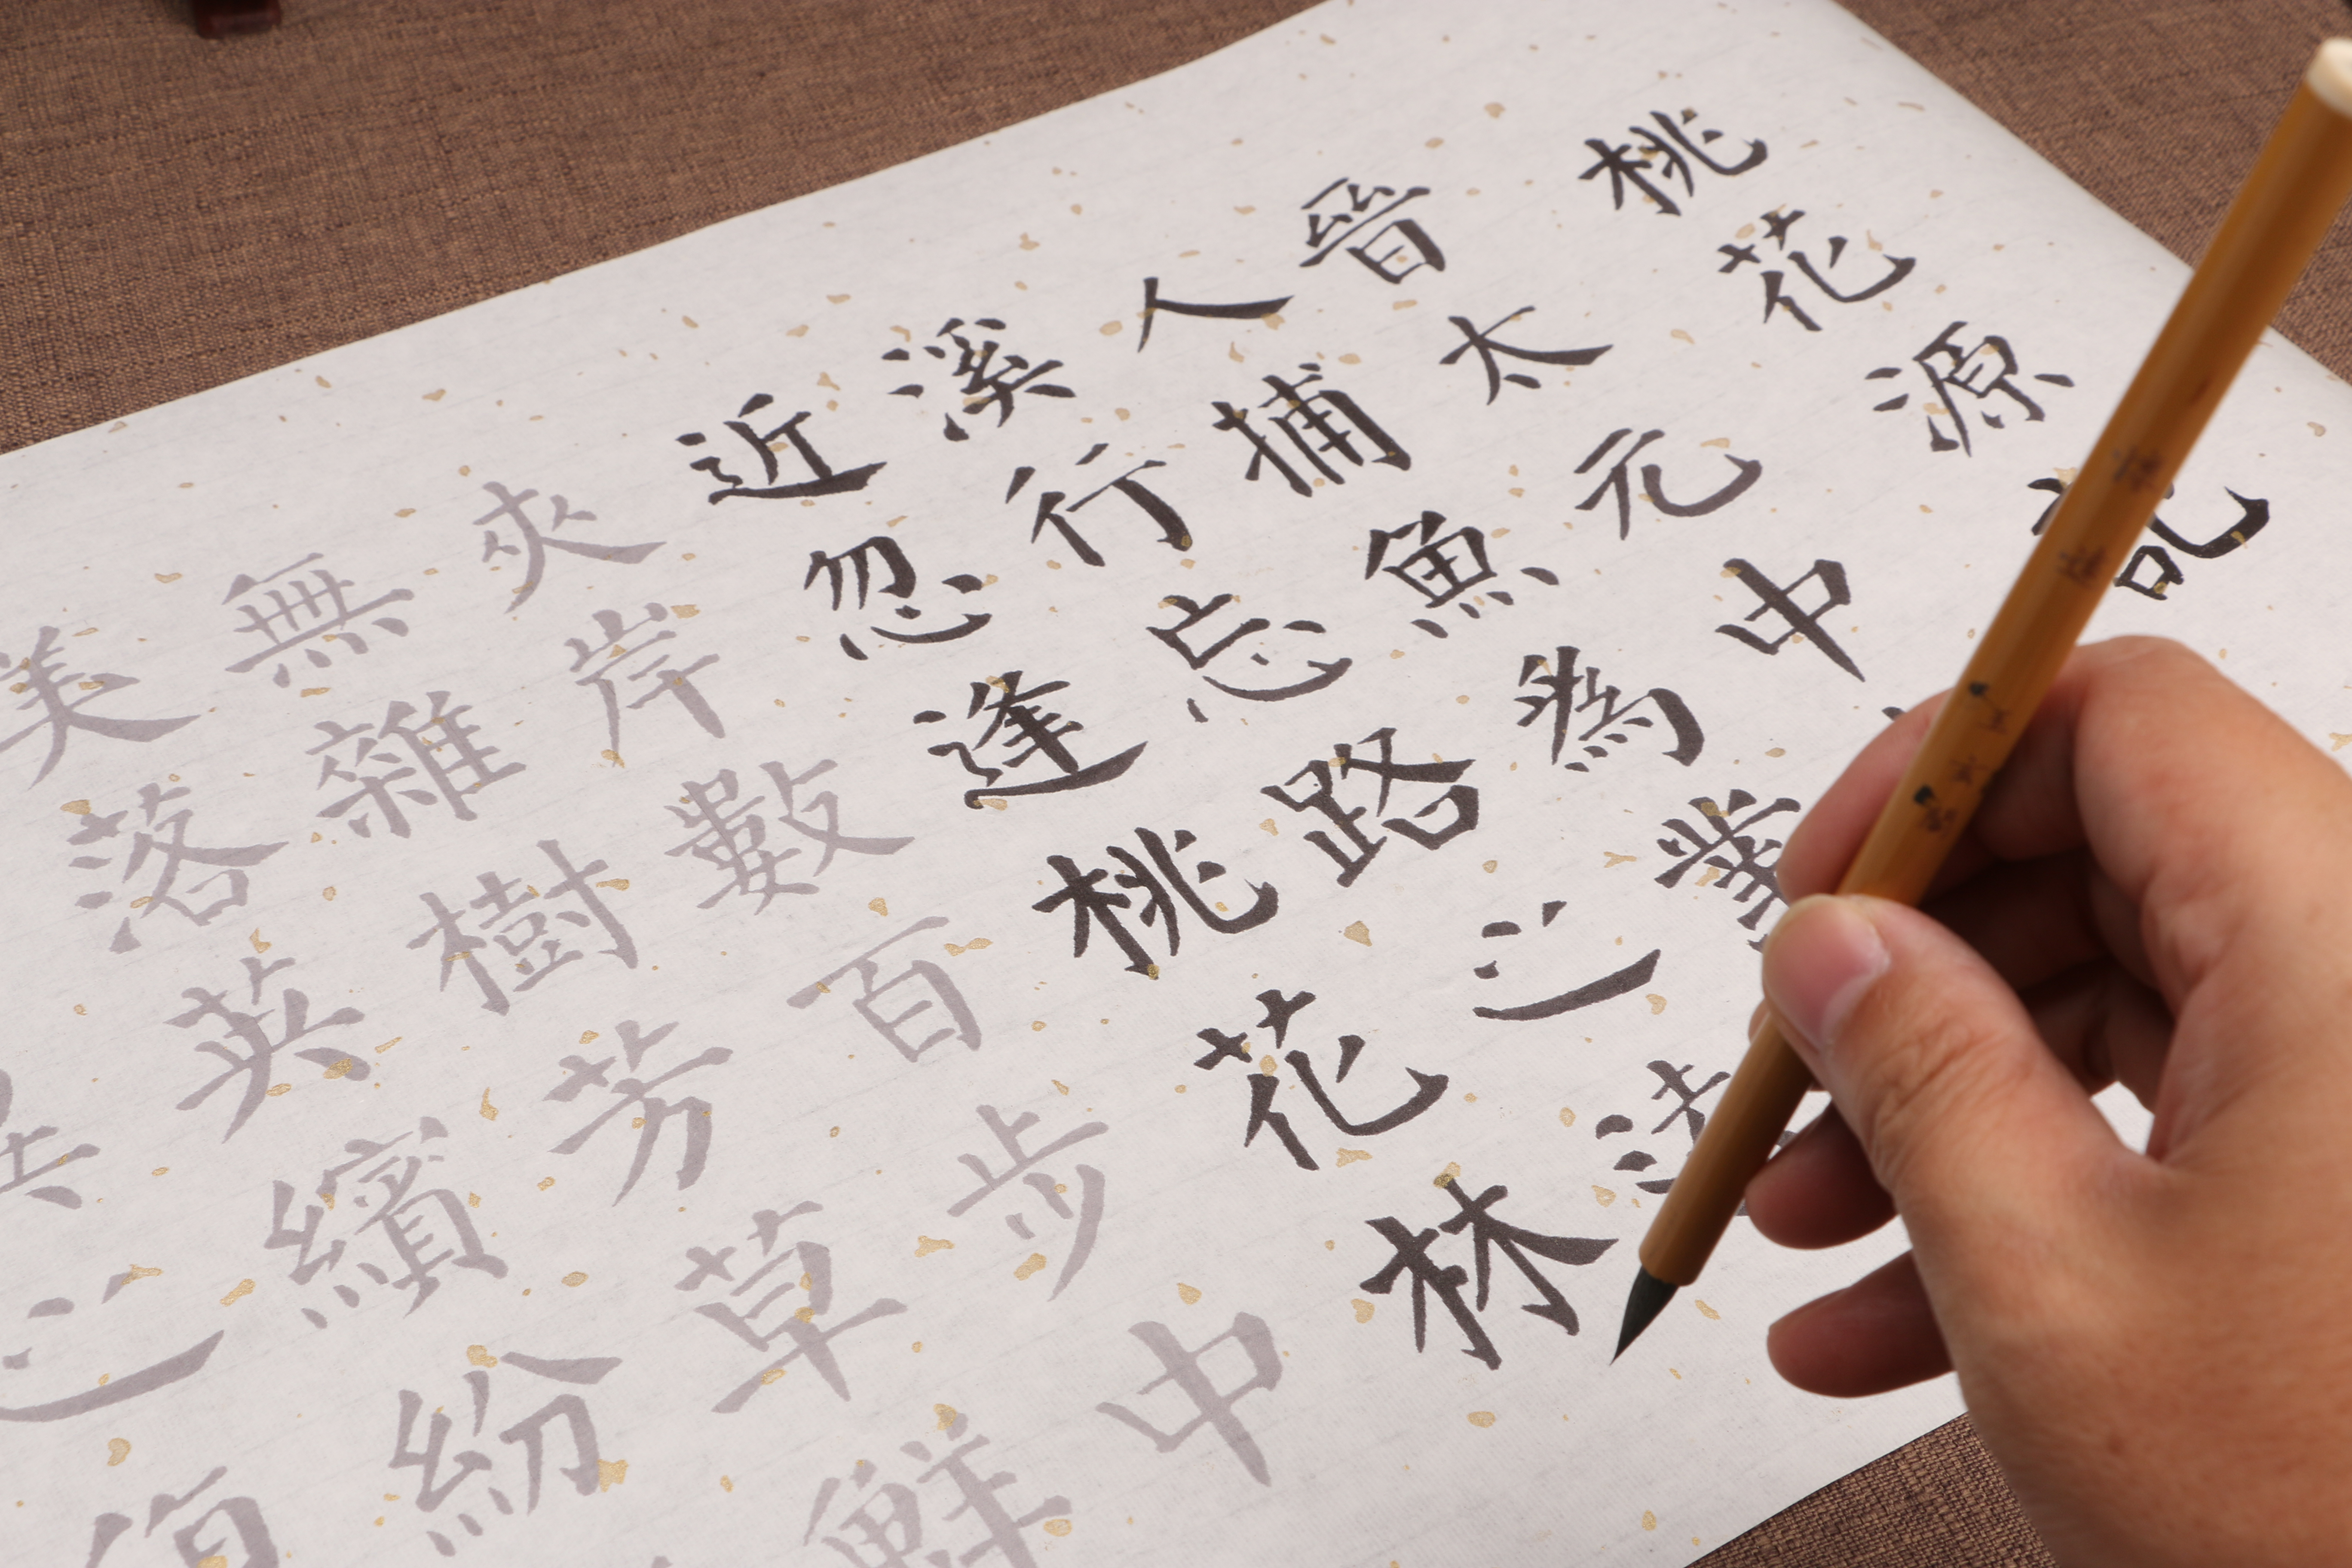 桃花源記
晉太元中
人捕魚為業
溪行忘路之
近忽逢桃花林
夾岸數百步中
無雜樹芳草鮮
美落英繽紛
之復